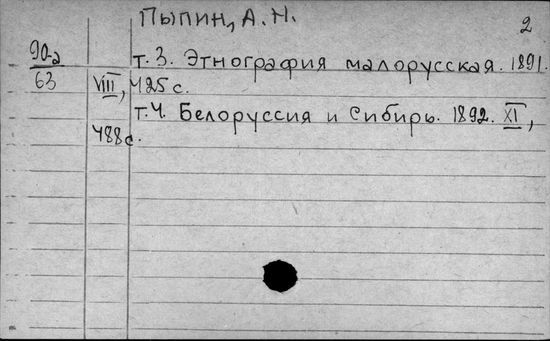 Пыпин, А. Н.
2
90-2
63
т. 3. Этнография малорусская. 1891.
VIII, 425 с.
т. 4. Белоруссия и Сибирь. 1892. XI,
488 с.